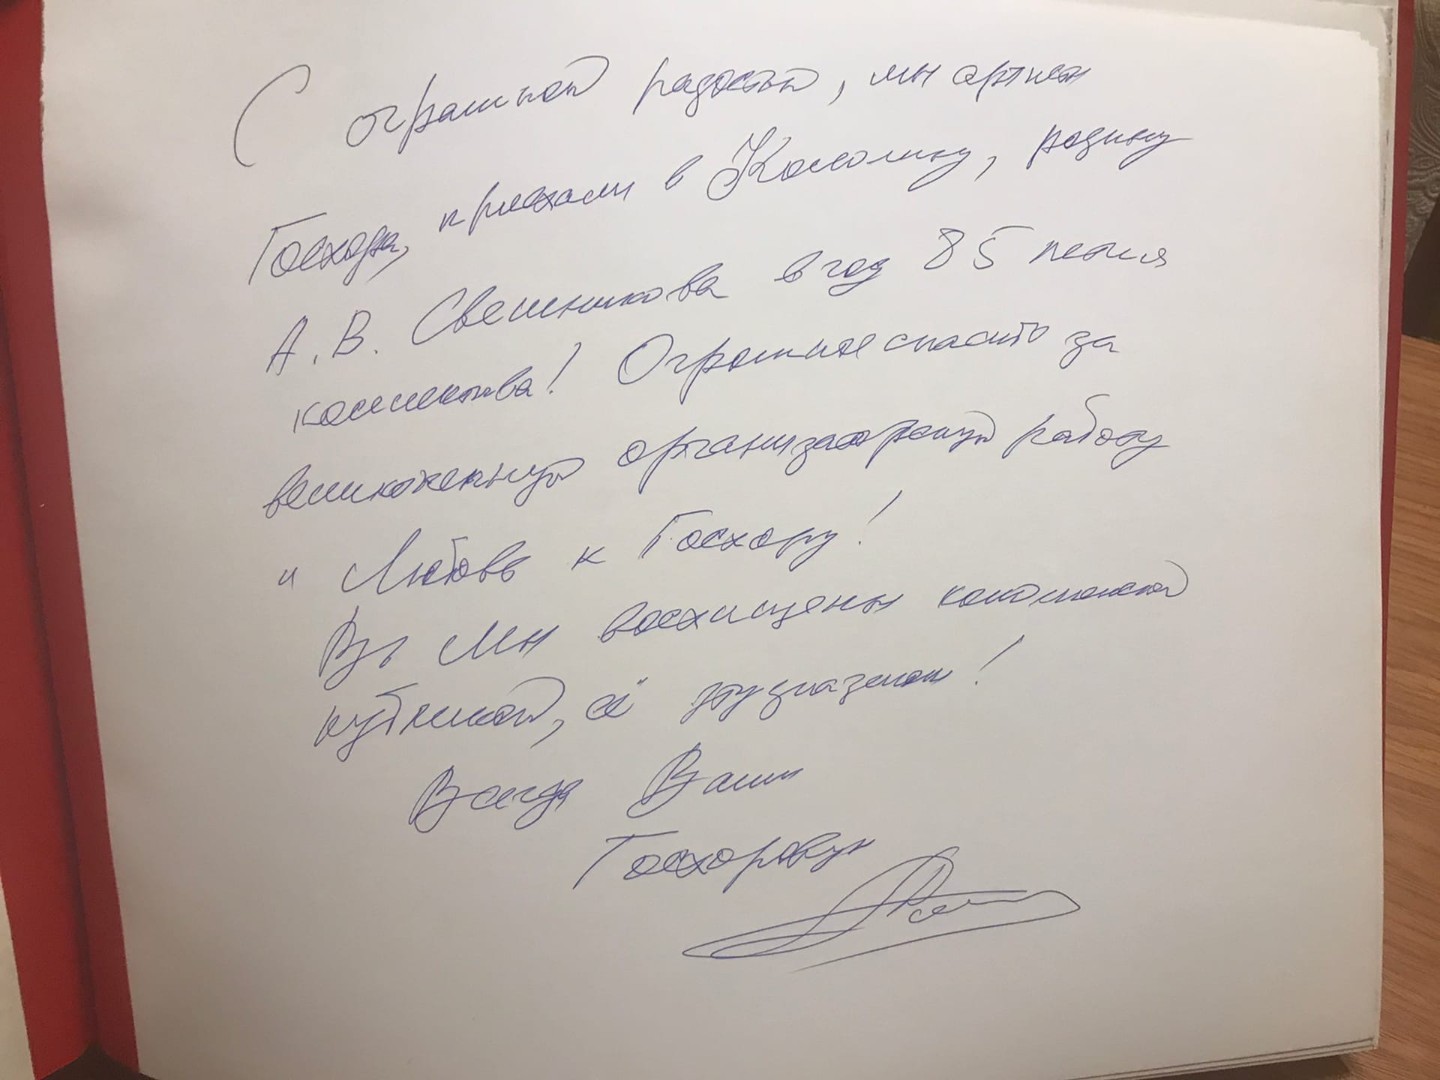 С огромной радостью, мы артисты
Госхора, приехали в Коломну, родину
А. В. Свешникова в год 85 летия
коллектива! Огромное спасибо за
великолепную организаторскую работу
и Любовь к Госхору!
Мы восхищены коломенской
публикой, её энтузиазмом!
Всегда Ваши
Госхоровцы